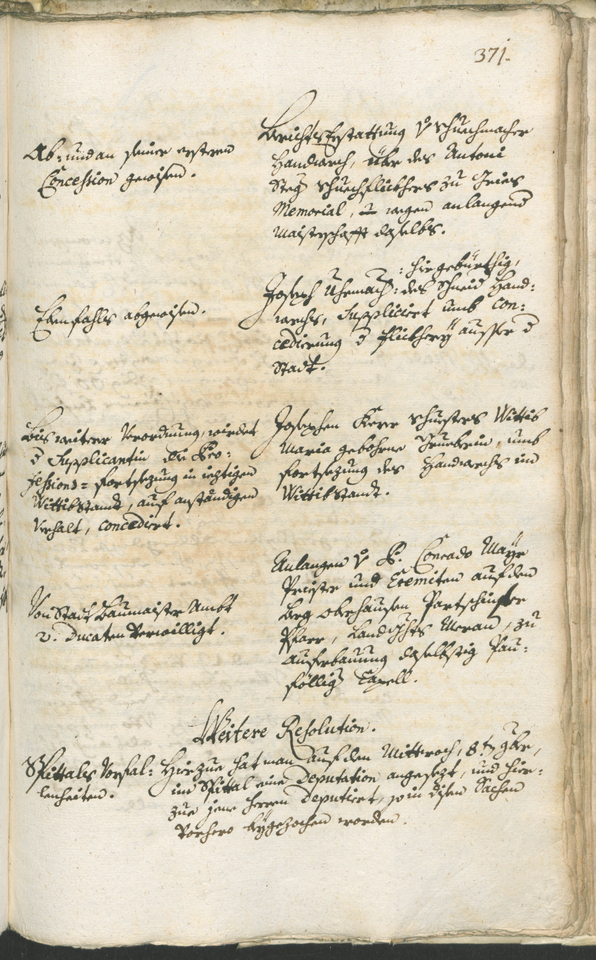 371.
Ab- und an seiner ersteren
Concession gewisen.
Berichts Erstattung Schuechmacher
Handwerch, über des Antoni
Steg Schuechflickhers zu Gries
Memorial, wegen anlangend
Maisterschafft daselbs.
Ebenfahls abgewisen.
hirgebürthig,
Joseph des Schneid Hand-
werchs, Supplicirt umb Con-
cedierung d flickherey ausser d
Statt.
Bis weiterer Verordnung, würdet
d Supplicantin die Pro-
fessions-fortsezung in iehzigen
Wittibstandt, auf anständigen
Verhalt, concedirt.
Josephen Schuesters Wittib
Maria gebohrne umb
fortsezung des Handwerchs im
Wittibstandt.
Von Statt Baumaister Ambt
2. Ducaten Verwilligt.
Anlangen P. Conrado Mayr
Priester und Eremiten auf den
Berg Partschinser
Pfarr, Landgrichts Meran, zu
Auferbauung daselbstig Pau-
föllig Capell.
Weitere Resolution.
Spittalis Vorfal-
lenheiten.
Hierzue hat man auf den Mittwoch, 8ten
im Spittal eine Deputation angesezt, und hier-
zue jene Herrn Deputiert, so in disen Sachen
Vorhero beygezochen worden.